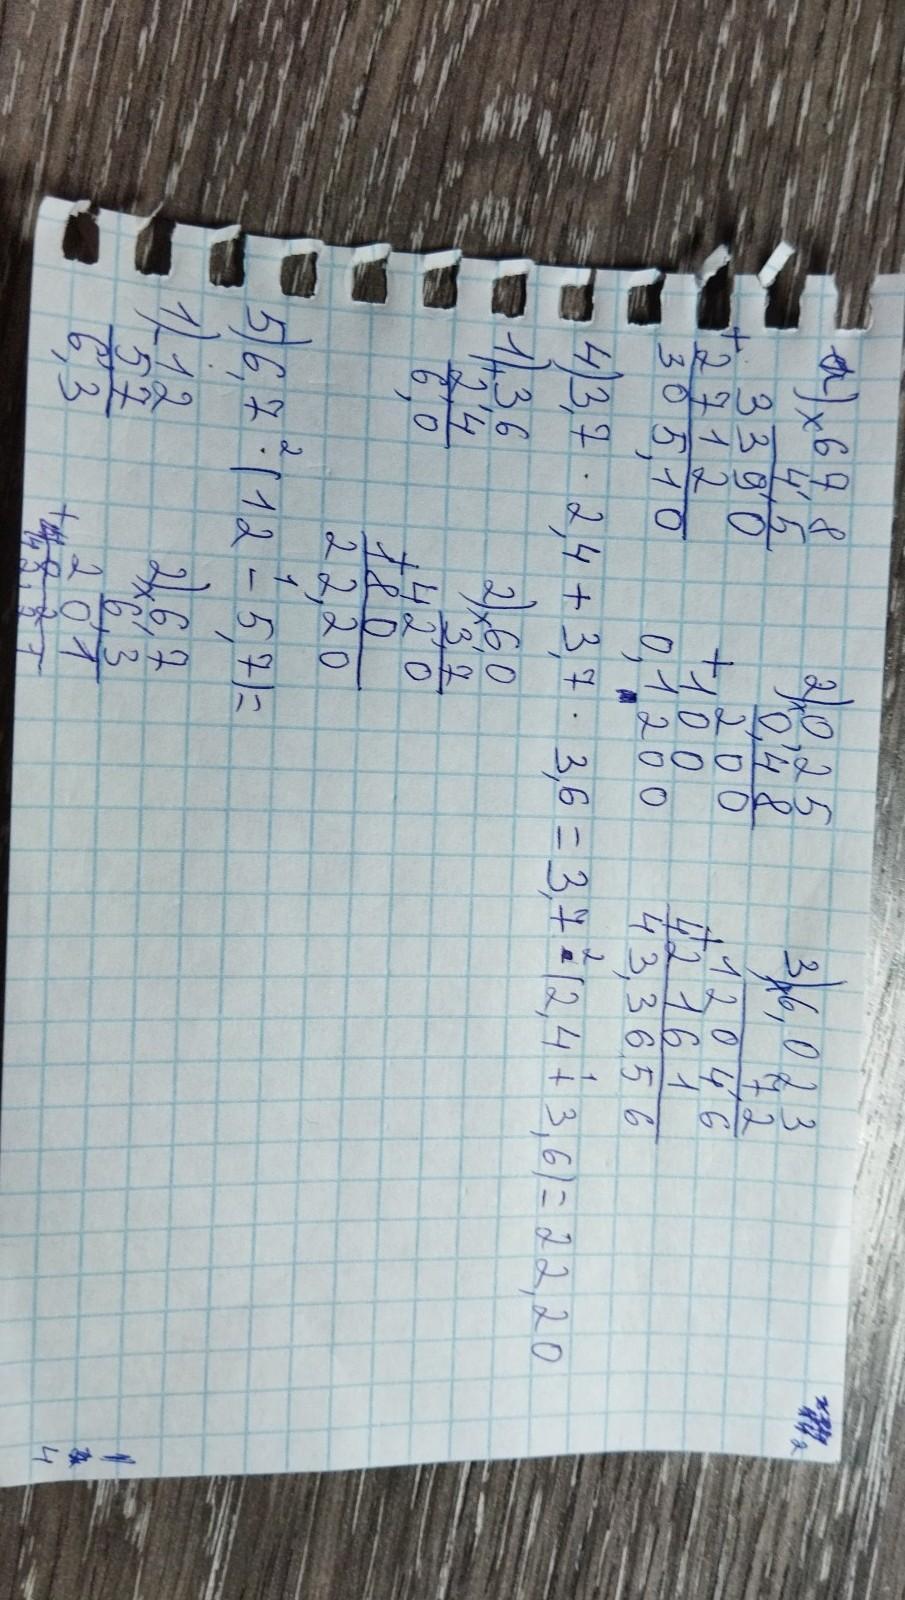 1) × 678
4,5
+ 3390
2712
305,10
2) × 0,25
0,48
+ 200
100
0,1200
3) × 6,023
72
+ 12046
42161
43,3656
4) 3,7 · 2,4 + 3,7 · 3,6 = 3,7 · (2,4 + 3,6) = 22,20
2 1
1) + 3,6
2,4
6,0
2) × 6,0
3,7
+ 420
180
22,20
5) 6,7 · (12 - 5,7) =
2 1
1) - 12
5,7
6,3
2) × 6,7
6,3
+ 201